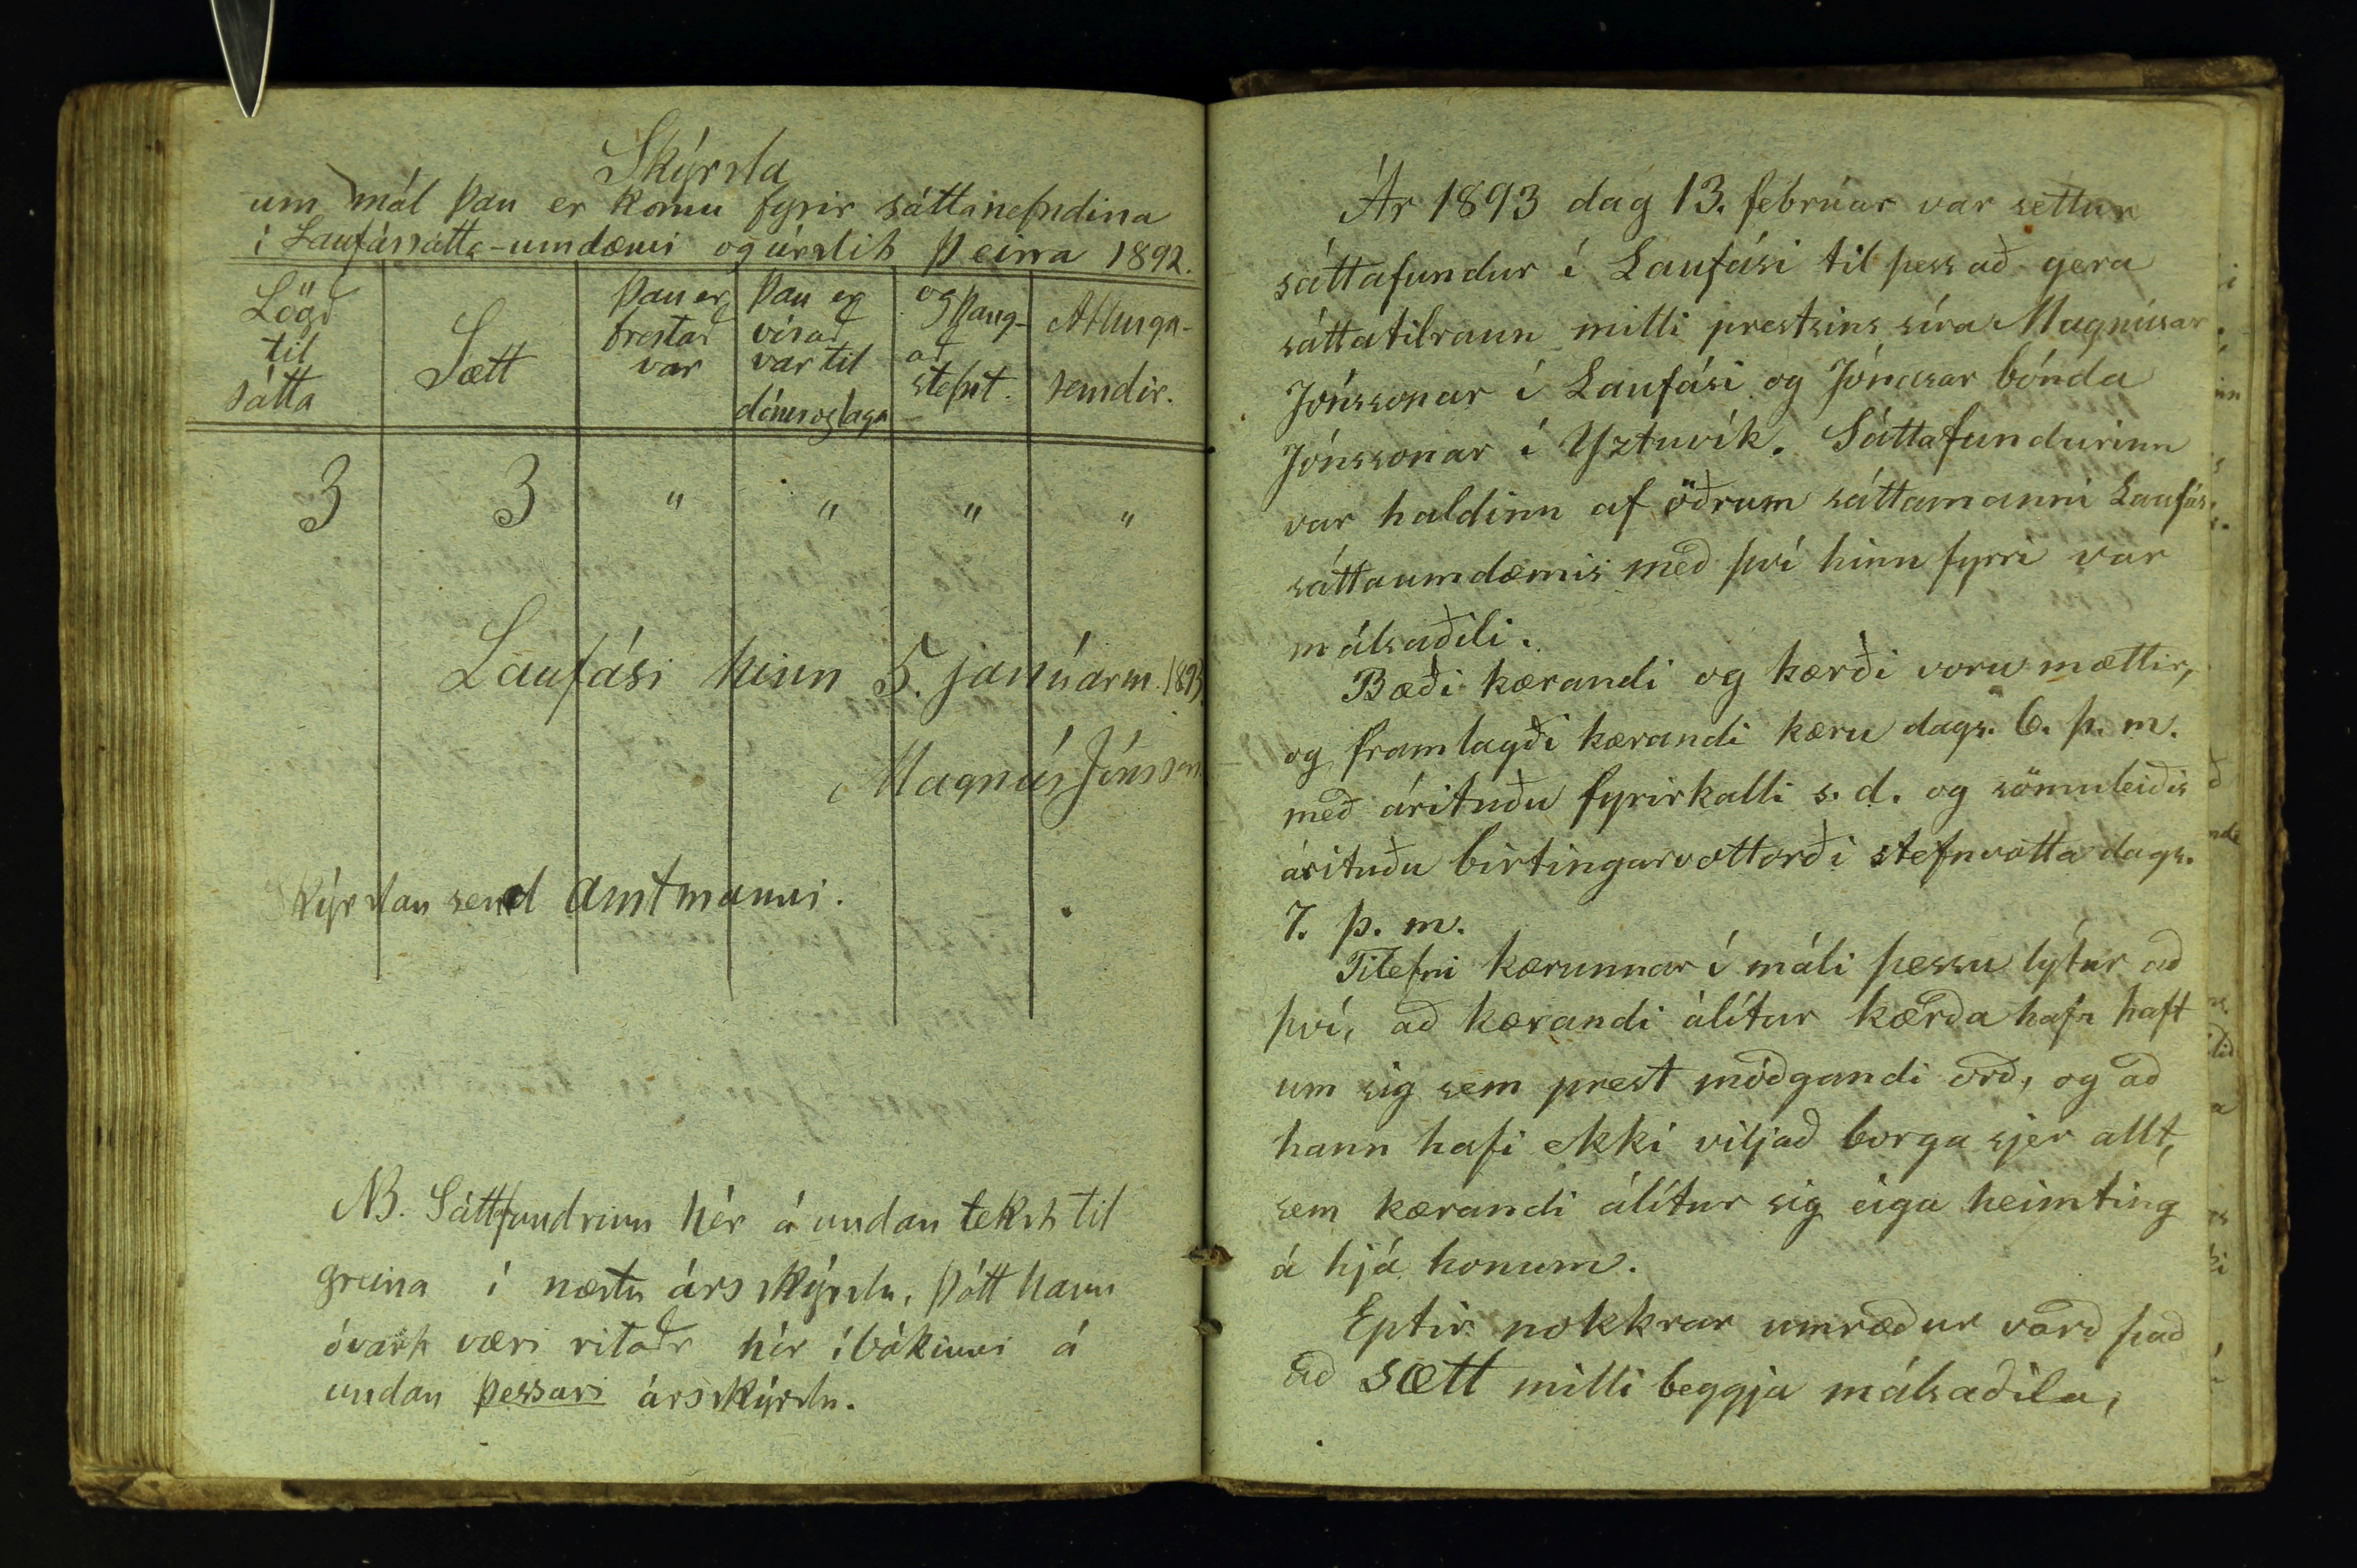 Skýrsla
um mál þau er komu fyrir sáttanefndina
í Laufássátta-umdæmi og úrslit þeirra 1892.
Lögð til sátta
Sætt
Þau er frestað var
Þau er vísað var til dóms og laga
og þangað stefnt.
Athugasemdir.
3 3 " " " "
Laufási hinn 5. janúarm. 1893
Magnús Jónsson
Skýrslan send amtmanni.
NB. Sáttfundrinn hér á undan tekst til
greina í næstu ársskýrslu, þótt hann
óvart væri ritaðr hér í bókinni á
undan þessari ársskýrslu.
Ár 1893 dag 13. febrúar var settur
sáttafundur í Laufási til þess að gera
sáttatilraun milli prestsins síra Magnúsar
Jónssonar í Laufási og Jónasar bónda
Jónssonar í Yztuvík. Sáttafundurinn
var haldinn af öðrum sáttamanni Laufás-
sáttaumdæmis með því hinn fyrri var
málsaðili.
Bæði kærandi og kærði voru mættir,
og framlagði kærandi kæru dags. 6. þ. m.
með árituðu fyrirkalli s. d. og sömuleiðis
árituðu birtingarvottorði stefnuvotta dags.
7. þ. m.
Tilefni kærunnar í máli þessu lýtur að
því, að kærandi álítur kærða hafa haft
um sig sem prest móðgandi orð, og að
hann hafi ekki viljað borga sjer allt,
sem kærandi álítur sig eiga heimting
á hjá honum.
Eptir nokkrar umræður varð það
að sætt milli beggja málsaðila,